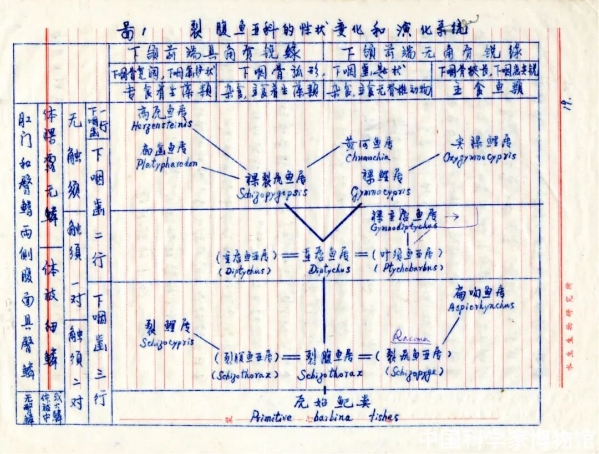 图1 裂腹鱼亚科的性状变化和演化系统
下颌前端具角质锐缘 下颌前端无角质锐缘
下咽骨弧形，
专食着生藻类 杂食，主食着生藻类 杂食，主食无脊椎动物 主食鱼类
肛门和臀鳍两侧腹面具臀鳞
体裸露无鳞
体被细鳞
无触须
触须一对
触须二对
下咽齿一行
下咽齿二行
下咽齿三行
高原鱼属
Herzensteinis
扁齿鱼属
Platypharodon
黄河鱼属
Chuanchia
尖裸鲤属
Oxygymnocypris
裸裂尻鱼属
Schizopygopsis
裸鲤属
Gymnocypris
裸重唇鱼属
Gymnodiptychus
(重唇鱼亚属) 重唇鱼属 (叶须鱼亚属)
(Diptychus) Diptychus (Ptychobarbus)
扁吻鱼属
Aspiorhynchus
裂鲤属
Schizocypris
Racoma
(裂腹鱼亚属) 裂腹鱼属 (裂尻鱼亚属)
(Schizothorax) Schizothorax (Schizopyge)
原始鲃类
Primitive barbina fishes
19.
水生生物研究所
中国科学家博物馆